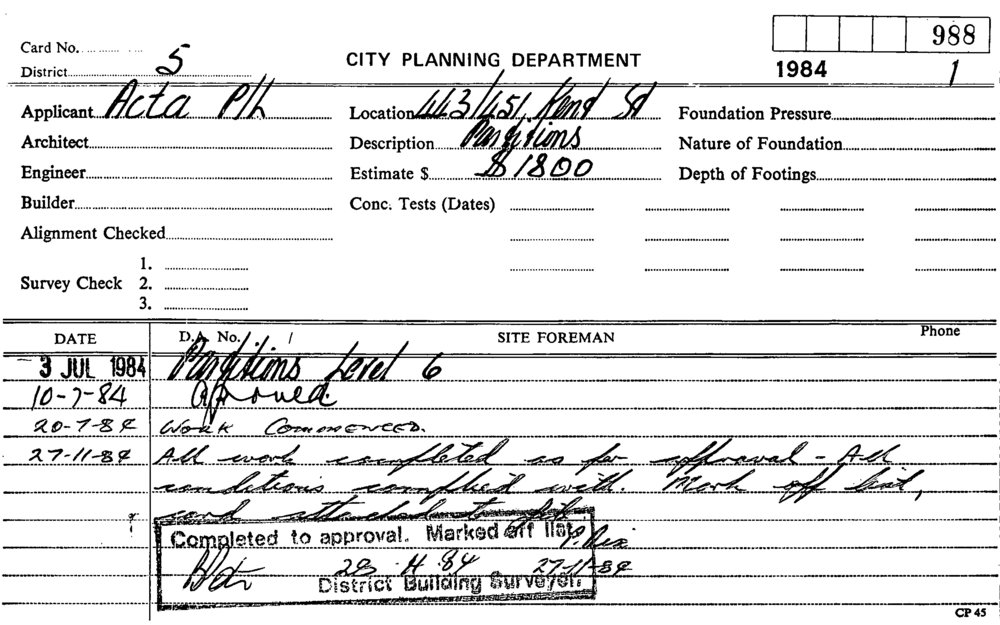 988
Card No.
District 5
CITY PLANNING DEPARTMENT
1984 1
Applicant Acta P/L
Location 443/451 Kent St
Foundation Pressure
Architect
Description Partitions
Nature of Foundation
Engineer
Estimate $ $1800
Depth of Footings
Builder
Conc. Tests (Dates)
Alignment Checked
Survey Check
1.
2.
3.
DATE D.A. No. / SITE FOREMAN Phone
3 JUL 1984 Partitions Level 6
10-7-84 Approved.
20-7-84 WORK COMMENCED.
27-11-84 All work completed as per approval - All
conditions complied with. Mark off list,
card attached to file
Completed to approval. Marked off list.
28 11 84 27-11-84
District Building Surveyor.
CP 45